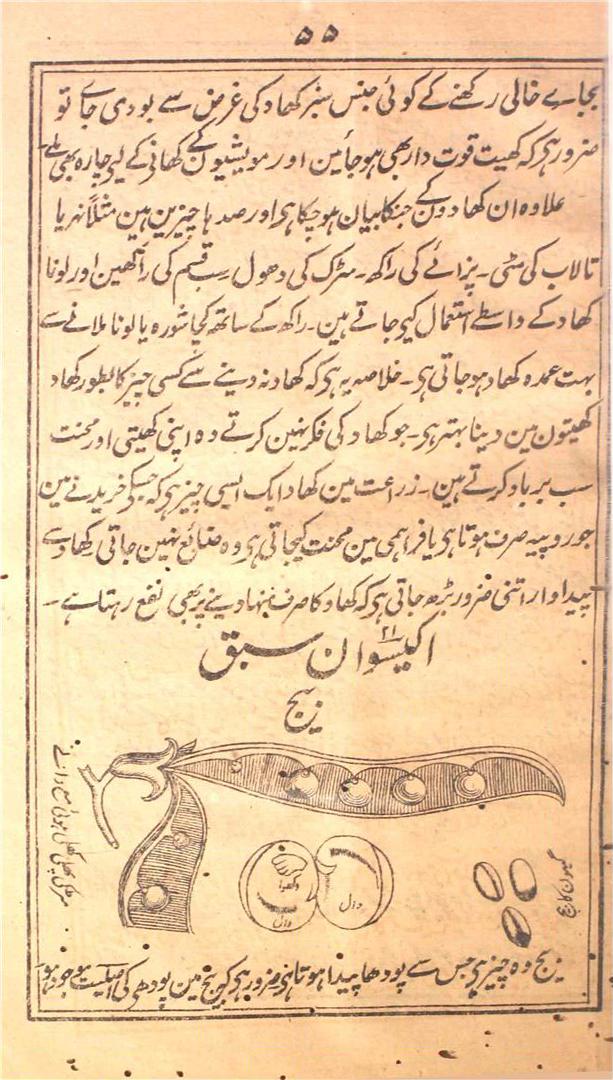 ۵۵
بجاے خالی رکھنے کے کوئی جنس سبز کھاد کی غرض سے بودی جاے تو
ضرور ہی کہ کھیت قوت دار بھی ہو جاٸین اور مویشیون کے کھانی کے لیے چارہ بھی ملے
علاوہ ان کھادون کے جنکا بیان ہو چکا ہی اور صدہا چیزین ہین مثلاً نہر یا
تالاب کی مٹی ۔ پزائے کی راکھ ۔ سڑک کی دھول سب قسم کی راکھین اور لونا
کھاد کے واسطے استعمال کیے جاتے ہین ۔ راکھ کے ساتھ کچا شورہ یا لونا ملانے سے
بہت عمدہ کھاد ہو جاتی ہی ۔ خلاصہ یہ ہی کہ کھاد نہ دینے سے کسی چیز کا بطور کھاد
کھیتون مین دینا بہتر ہی ۔ جو کھاد کی فکر نہین کرتے وہ اپنی کھیتی اور محنت
سب برباد کرتے ہین ۔ زراعت مین کھاد ایک ایسی چیز ہی کہ جسکی خریدنے مین
جو روپیہ صرف ہوتا ہی یا فراہمی مین محنت کیجاتی ہی وہ ضائع نہین جاتی کھاد سے
پیداوار اتنی ضرور بڑھ جاتی ہی کہ کھاد کا صرف منہا دینے پر بھی نفع رہتا ہے ۔
اکیسوان ۲۱ سبق
بیج
مٹر کی پھلی کھلی ہوئی مع دانے
دال
دال
گیہون کا بیج
بیج وہ چیز ہی جس سے پودھا پیدا ہوتا ہی ضرور ہی کہ بیج مین پودھی کی اصلیت موجود ہو